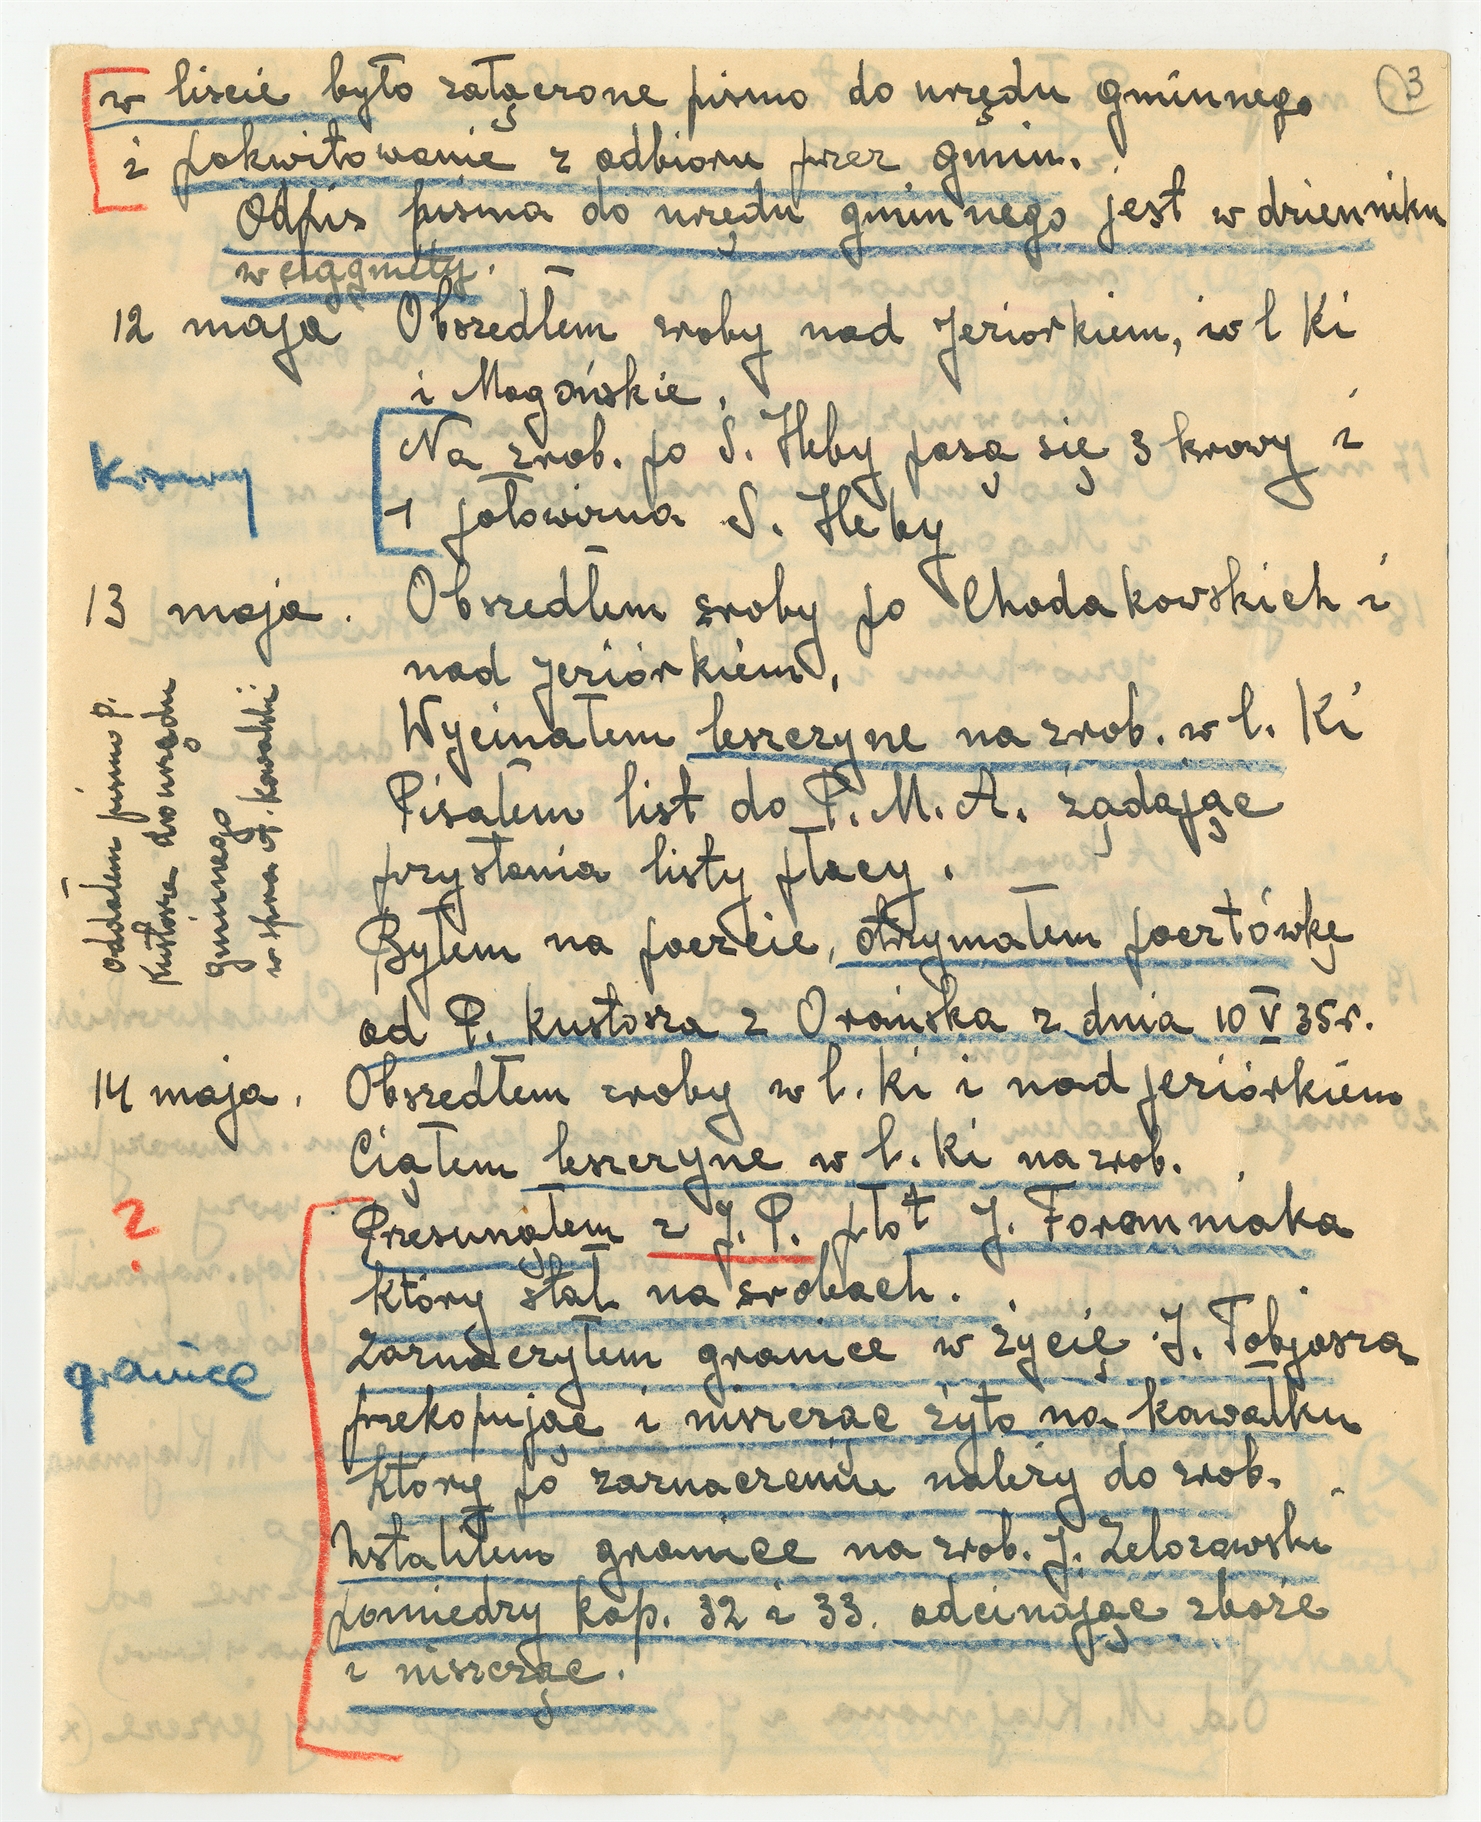 3
w liscie było załączone pismo do urzędu gminnego
i pokwitowanie z odbioru przez gmin.
Odpis pisma do urzędu gminnego jest w dzienniku
wciągnięty.
12 maja Obszedłem zroby nad Jeziorkiem, w l Ki
i Mogońskie.
Krowy
Na zrob. po S. Heby pasą się 3 krowy i
1 jałowizna S. Heby
13 maja. Obszedłem zroby po Chodakowskich i
nad Jeziórkiem.
Wycinałem leszczyne na zrob. w l. Ki
Pisałem list do P. M. A. żądając
przysłania listy płacy.
Byłem na poczcie, otrzymałem pocztówkę
od P. Kustosza z Orońska z dnia 10 V 35 r.
oddałem pismo p.
Kustosza do urzędu
gminnego
w spra A. Kowalski
14 maja. Obszedłem zroby w l. Ki i nad jeziórkiem
Ciąłem leszczyne w l. Ki na zrob.
?
Przesunąłem z J. P. płot J. Foranniaka
który stał na zrobach.
granice
Zaznaczyłem granice w życie J. Tobjasza
przekopując i niszcząc żyto na kawałku
który po zaznaczeniu należy do zrob.
Ustaliłem granice na zrob. J. Zelozowski
pomiedzy kop. 32 i 33. odcinając zboże
i niszcząc.